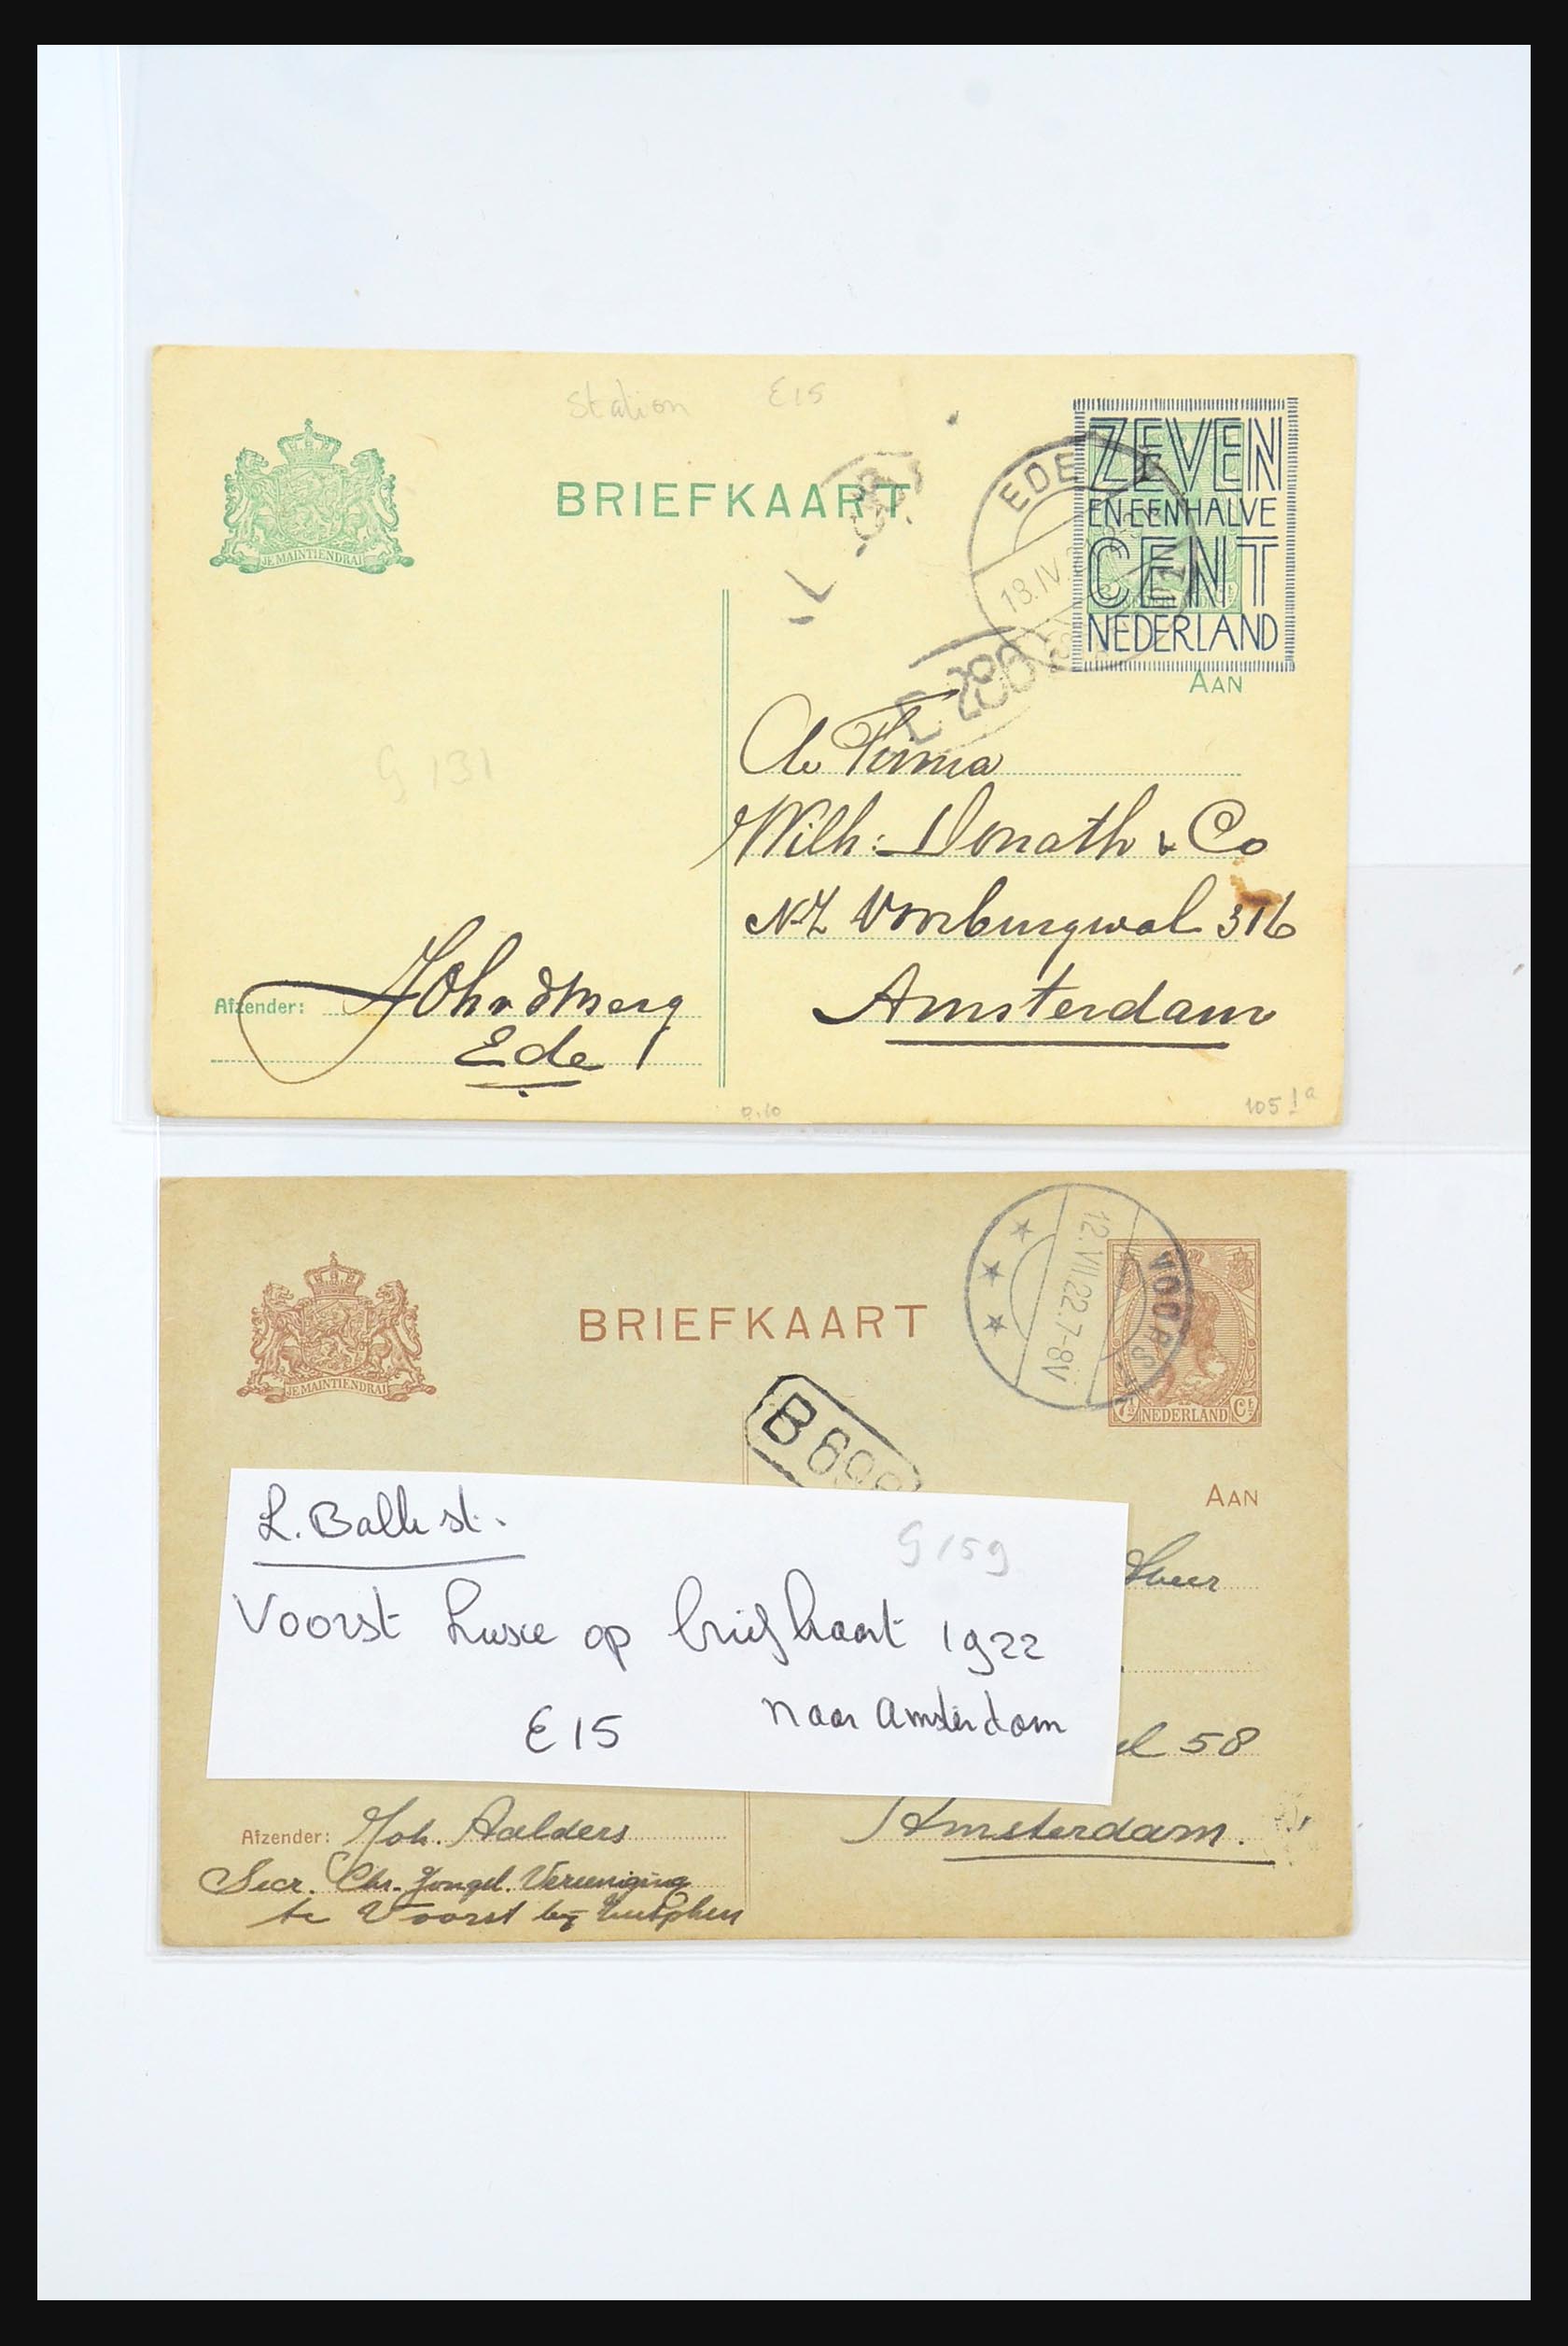 Station E15
BRIEFKAART
JE MAINTIENDRAI
EDE
18.IV.
ZEVEN
EN EEN HALVE
CENT
NEDERLAND
AAN
de Firma
Wilh: Donath & Co
N.Z. Voorburgwal 316
Amsterdam
G 131
Afzender:
Ede
0.10
105 Ia
BRIEFKAART
JE MAINTIENDRAI
VOORST
12.VII.22.7-8V
7½ NEDERLAND Ct
AAN
Heer
58
Amsterdam.
L. Balkst.
G 159
Voorst Luxe op briefkaart 1922
E15 naar Amsterdam
Afzender: Joh. Aalders
Secr. Chr. Jongel. Vereeniging
te Voorst bij Zutphen